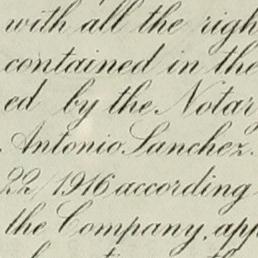 with all the righ
contained in the
ed by the Notar
Antonio Sanchez.
22/1916 according
the Company, app